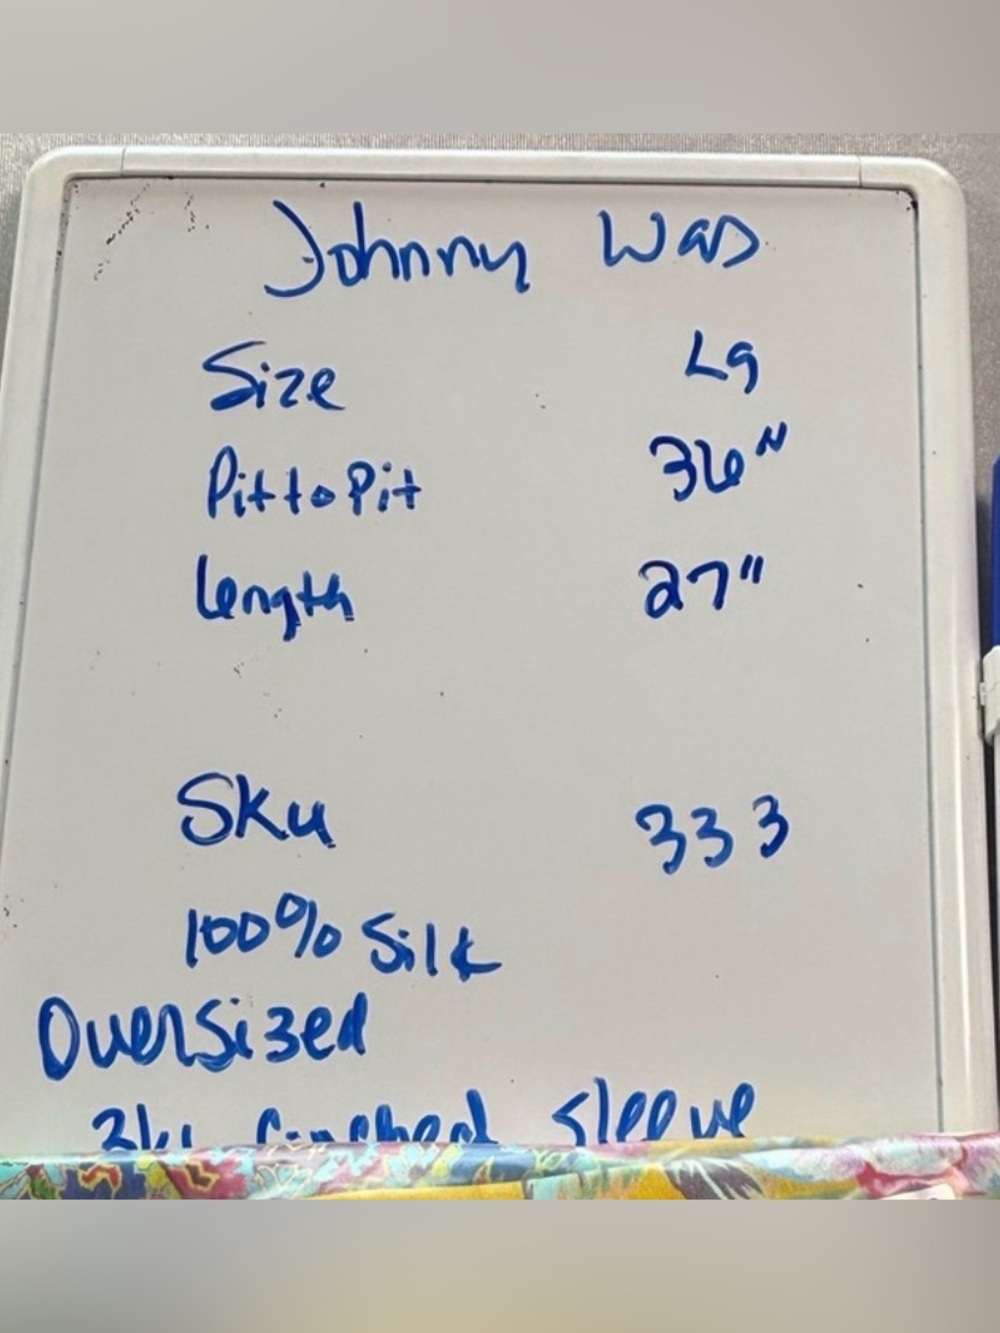 Johnny Was
Size Lg
Pit to Pit 36"
Length 27"
Sku 333
100% Silk
Oversized
sleeve